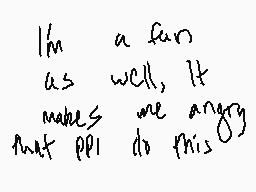 I'm a fan
as well, It
makes me angry
that ppl do this